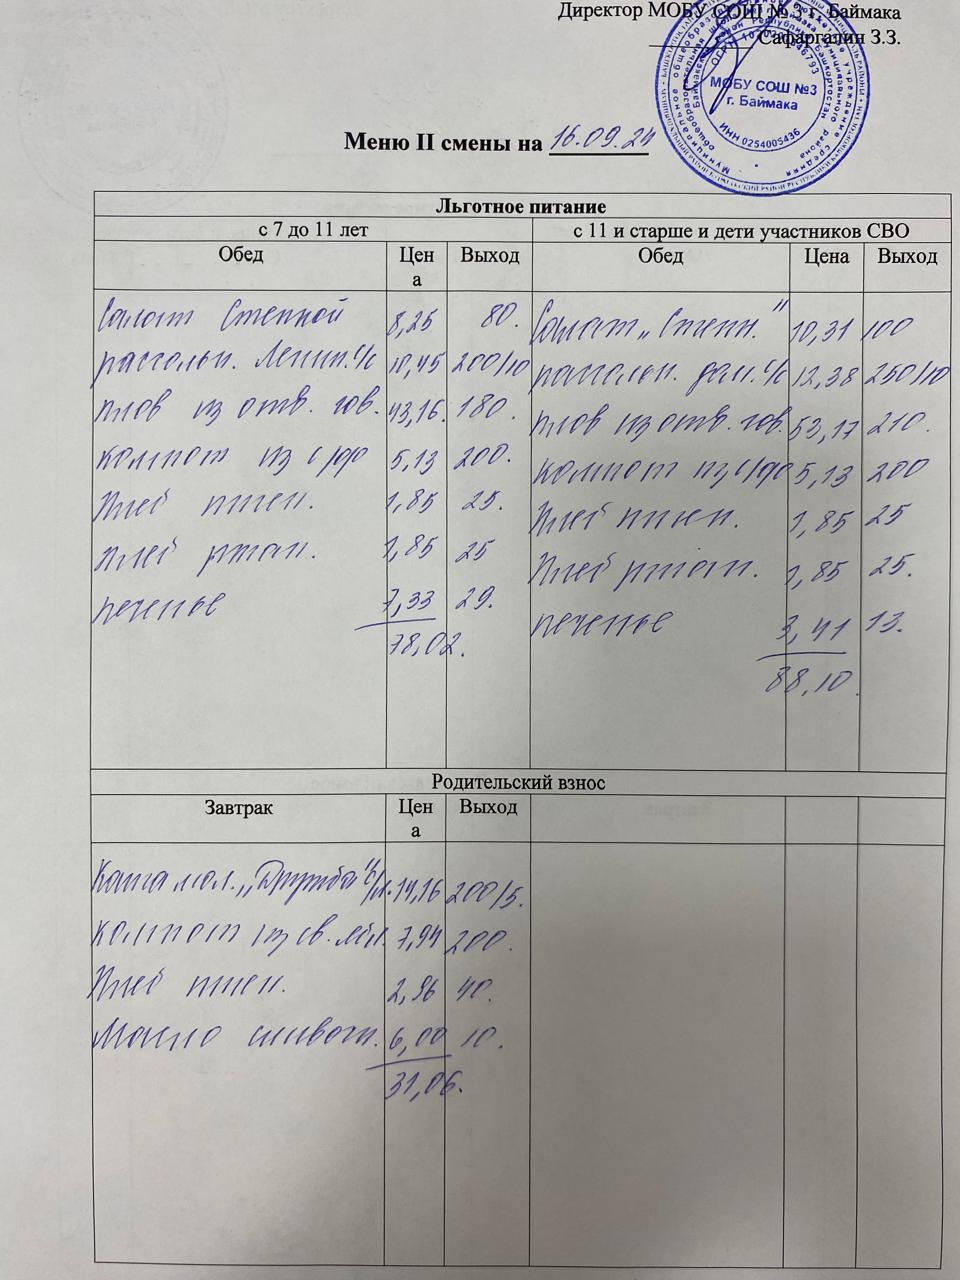 Директор МОБУ СОШ № 3 г. Баймака
Сафаргалин З.З.
МОБУ СОШ №3
г. Баймака
ИНН 0254005436
Меню II смены на 16.09.24
Льготное питание
с 7 до 11 лет с 11 и старше и дети участников СВО
Обед Цена Выход Обед Цена Выход
Салат Степной 8,25 80. Салат „Степн." 10,31 100
рассольн. Ленин. с/с 10,45 200/10 рассольн. дом. с/с 12,38 250/10
плов из отв. гов. 43,16. 180. плов из отв. гов. 53,17 210.
компот из с/фр 5,13 200. компот из с/фр 5,13 200
Хлеб пшен. 1,85 25. Хлеб пшен. 1,85 25
хлеб ржан. 1,85 25 Хлеб ржан. 1,85 25.
печенье 7,33 29. печенье 3,41 13.
78,02. 88,10.
Родительский взнос
Завтрак Цена Выход
Каша мол. „Дружба" с/м. 14,16 200/5.
компот из св. ябл. 7,94 200.
Хлеб пшен. 2,96 40.
Масло сливочн. 6,00 10.
31,06.